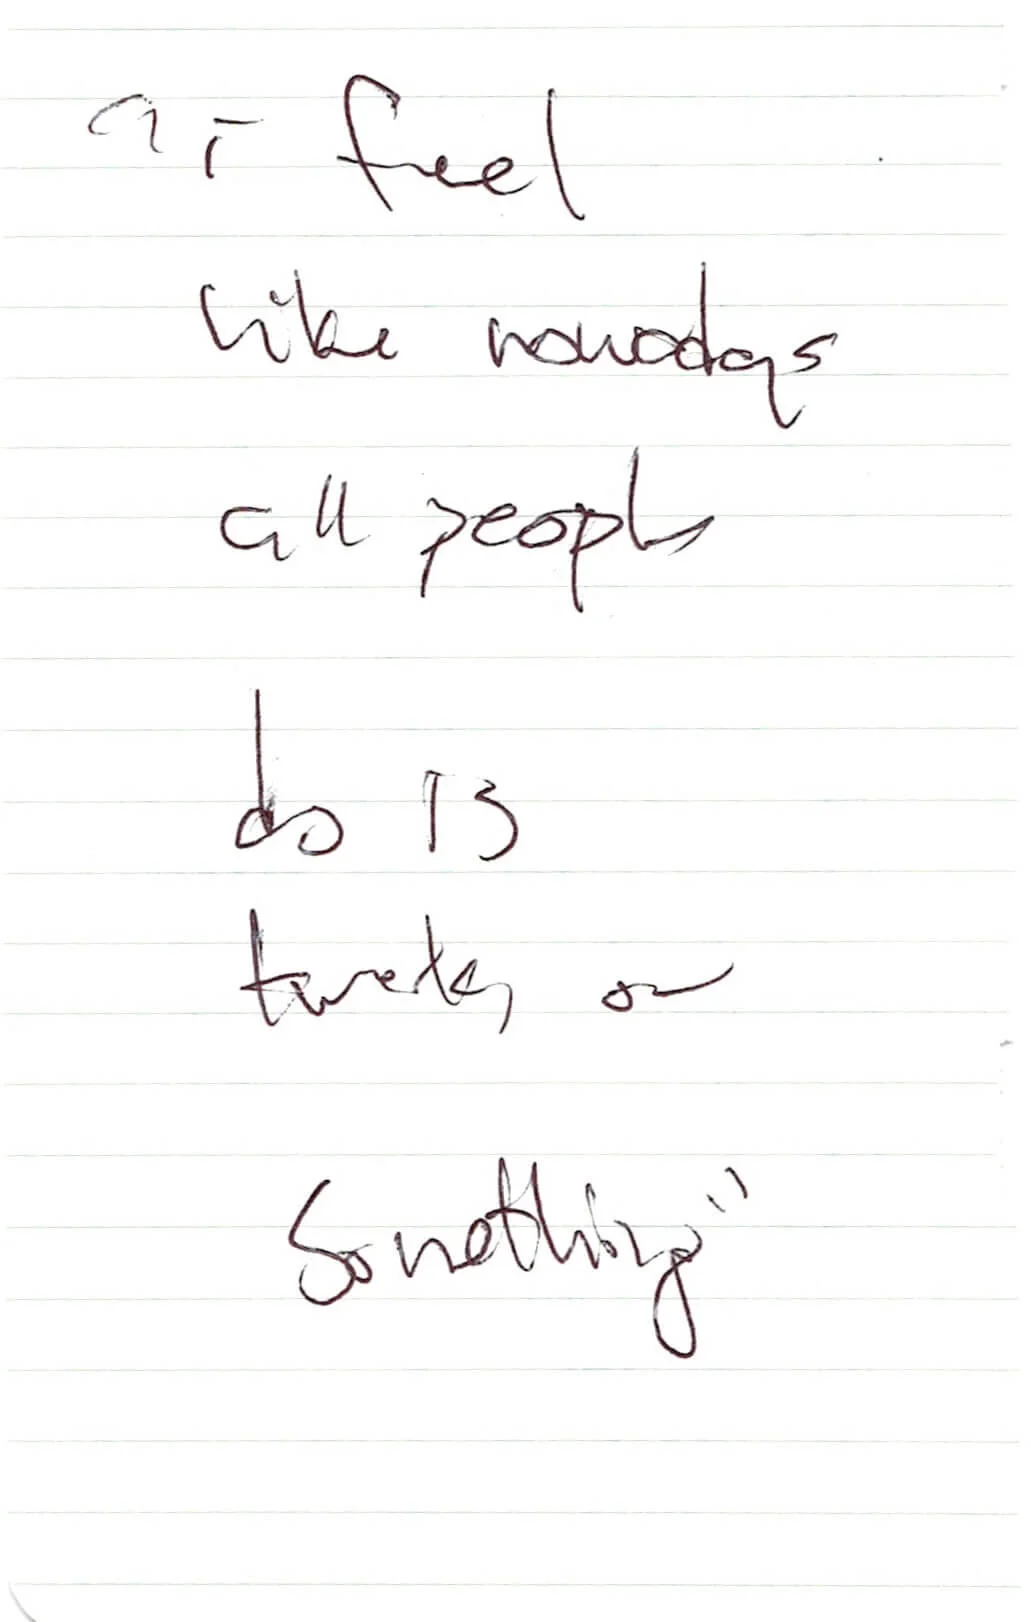 "I feel
like nowadays
all people
do is
twerk, or
something"